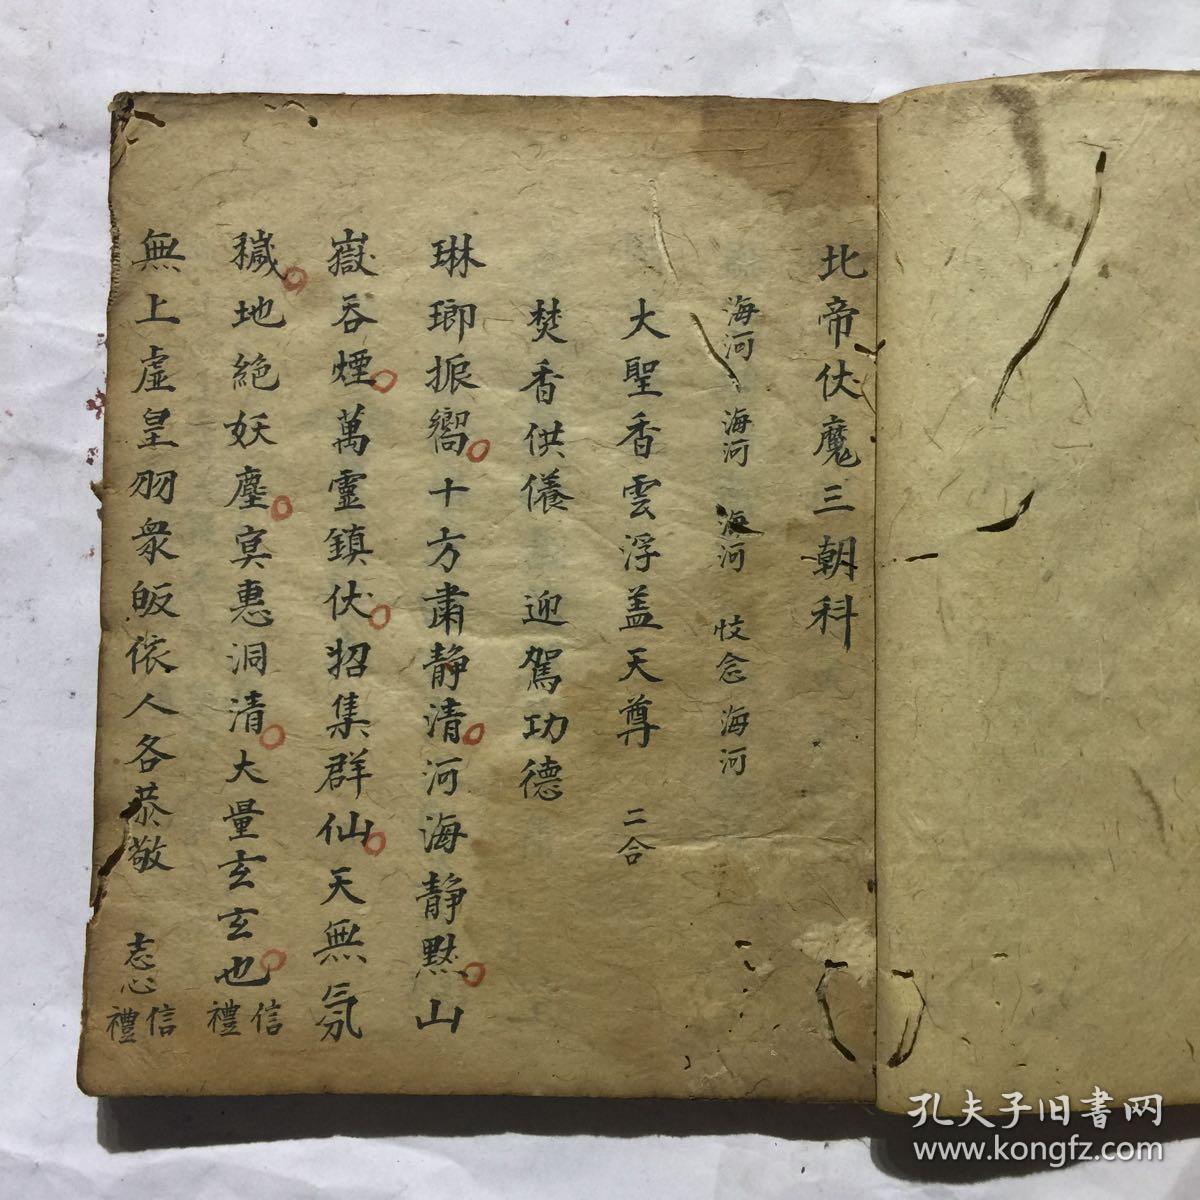 北帝伏魔三朝科
海河 海河 海河 忮念 海河
大聖香雲浮盖天尊 二合
焚香供儀 迎駕功德
琳瑯振嚮十方肅静清河海静默山
嶽吞煙萬靈鎮伏招集群仙天無氛
穢地絶妖塵冥惠洞清大量玄玄也 信禮
無上虛皇羽衆皈依人各恭敬 志心 信禮
孔夫子旧書网
www.kongfz.com